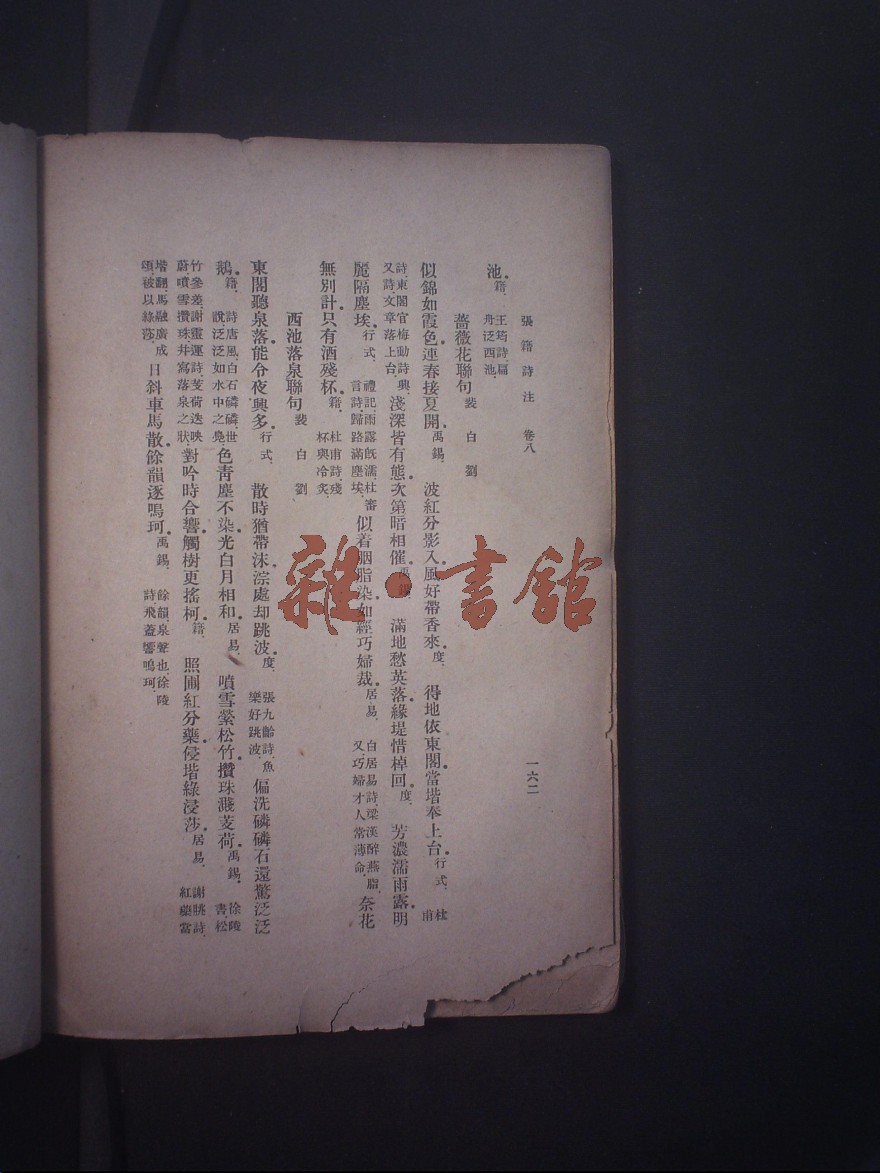 張籍詩注　卷八
一六二
池。籍、王筠詩、扁舟泛西池、
薔薇花聯句　裴　白　劉
似錦如霞色。連春接夏開。禹錫、　波紅分影入。風好帶香來。度、　得地依東閣。當堦奉上台。行式、　杜甫
詩、東閣官梅動詩興、又詩、文章落上台、　淺深皆有態。次第暗相催。禹錫、　滿地愁英落。緣堤惜棹回。度、　芳濃濡雨露。明
麗隔塵埃。行式、　禮記、雨露既濡、杜審言詩、歸路滿塵埃、　似着胭脂染。如經巧婦裁。居易、　白居易詩、梁漢醉燕脂、又、巧婦才人常薄命、　奈花
無別計。只有酒殘杯。籍、　杜甫詩、殘杯與冷炙、
西池落泉聯句　裴　白　劉
東閣聽泉落。能令夜興多。行式、　散時猶帶沫。淙處却跳波。度、　張九齡詩、魚樂好跳波、　偏洗磷磷石。還驚泛泛
鵝。籍、　詩唐風、白石磷磷、世說、泛泛如水中之鳧、　色靑塵不染。光白月相和。居易、　噴雪縈松竹。攢珠濺芰荷。禹錫、　徐陵書、松
竹參差、謝靈運詩、芰荷迭映蔚、噴雪攢珠、井寫落泉之狀、　對吟時合響。觸樹更搖柯。籍、　照圃紅分藥。侵堦綠浸莎。居易、　謝朓詩、紅藥當
堦翻、馬融廣成頌、被以綠莎、　日斜車馬散。餘韻逐鳴珂。禹錫、　餘韻、泉聲也、徐陵詩、飛蓋響鳴珂、
雜·書館